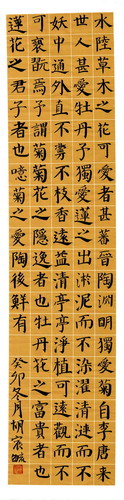 水陸草木之花可愛者甚蕃晉陶淵明獨愛菊自李唐來
世人甚愛牡丹予獨愛蓮之出淤泥而不染濯清漣而不
妖中通外直不蔓不枝香遠益清亭亭淨植可遠觀而不
可褻翫焉予謂菊菊花之隱逸者也牡丹花之富貴者也
蓮花之君子者也噫菊之愛陶後鮮有
癸卯冬月胡